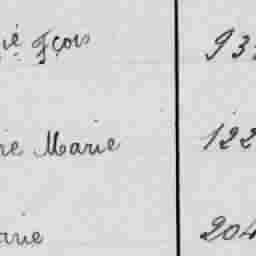 ié Fçois 93
rie Marie 122
arie 204